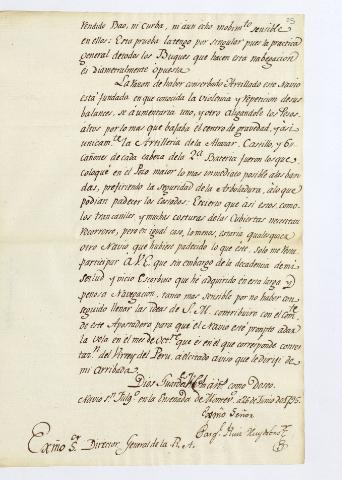 25
rendido Bao, ni Curba, ni aun echo mobim.to sensible
en ellos: Esta prueba la tengo por singular pues la practica
general de todos los Buques que hacen esta nabegacion
es diametralmente opuesta.
La razon de haber conserbado Artillado este Navio
está fundada en que conocida la violencia y repeticion de sus
balances, se aumentaria uno, y otro aligerandole los Pesos
altos por lo mas que bajaba el centro de gravedad, y asi
unicam.te la Artilleria de Alcazar, Castillo, y 6
Cañones de cada cabeza de la 2.a Bateria fueron los que
coloqué en el Pozo maior lo mas inmediato posible a las ban-
das, prefiriendo la seguridad de la Arboladura, á lo que
podian padecer los Costados. Es cierto que asi estos, como
los trancaniles, y muchas costuras de las Cubiertas necesitan
recorrerse, pero en igual caso, lo menos, estaria qualesquiera
otro Navio que hubiese padecido lo que este. Solo me resta
participar a V.E. que sin embargo de la decadencia de mi
salud y vicio Escorbutico que he adquirido en esta larga y
penosa Navegacion, tanto mas sensible por no haber con-
seguido llenar las ideas de S.M. contribuiré con el Com.te
de este Apostadero para que el Navio esté pronto a dar
la vela en el mes de Oct.re que es en el que corresponde contex-
tar del Virrey del Peru, al citado aviso que le dirijí de
mi arribada.
Dios Guarde á V.E. m.s an.s como Deseo.
Navio S.n Fulg.o en la Ensenada de Montev.o á 26 de Junio de 1795.
Exmo Señor
Exmo S.or Director General de la R.l A.